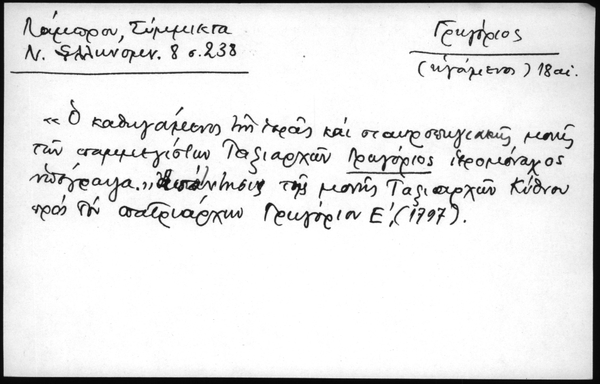 Λάμπρου, Σύμμικτα
Ν. Ελληνομν. 8 σ. 238
Γρηγόριος
(ηγούμενος) 18 αι.
«Ὁ καθηγούμενος τῆς ἱερᾶς καὶ σταυροπηγιακῆς μονῆς
τῶν παμμεγίστων Ταξιαρχῶν Γρηγόριος ἱερομόναχος
ὑπέγραψα.» Ἀπάντησις τῆς μονῆς Ταξιαρχῶν Κύθνου
πρὸς τὸν πατριάρχην Γρηγόριον Ε΄, (1797).